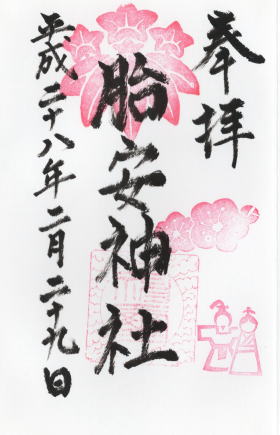 奉拝
胎安神社
平成二十八年二月二十九日